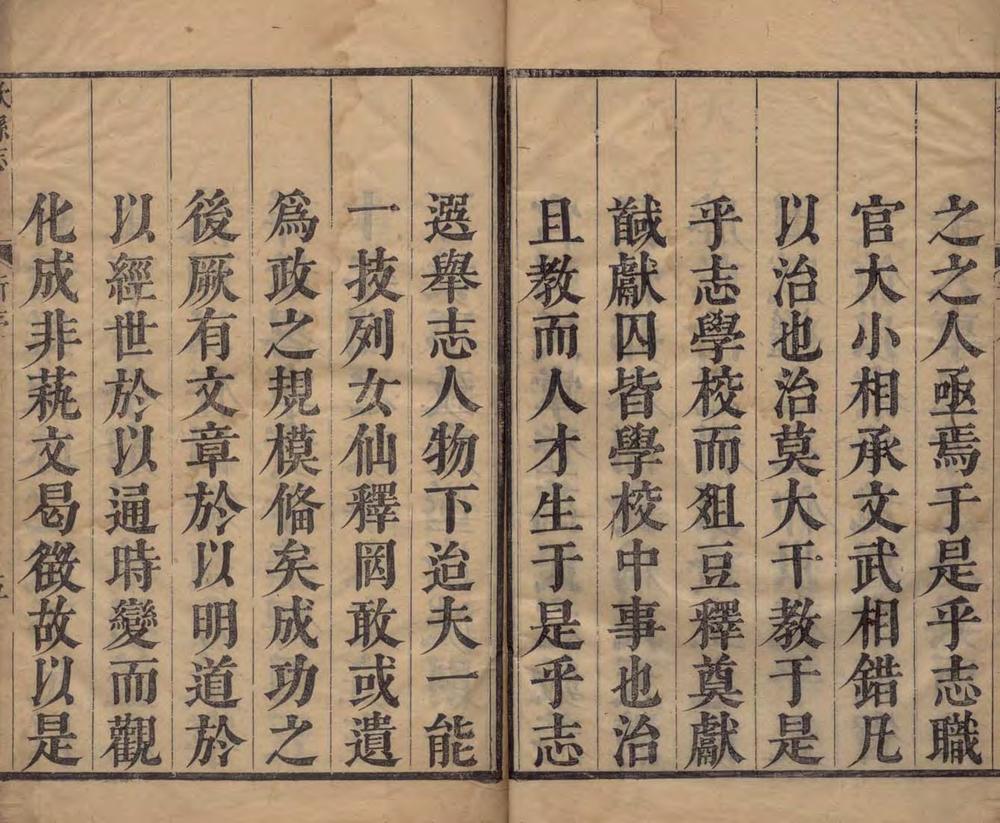 之之人亟焉于是乎志職
官大小相承文武相錯凡
以治也治莫大于教于是
乎志學校而俎豆釋奠獻
馘獻囚皆學校中事也治
且教而人才生于是乎志
選舉志人物下迨夫一能
一技列女仙釋罔敢或遺
爲政之規模偹矣成功之
後厥有文章於以明道於
以經世於以通時變而觀
化成非蓺文曷徵故以是
縣志